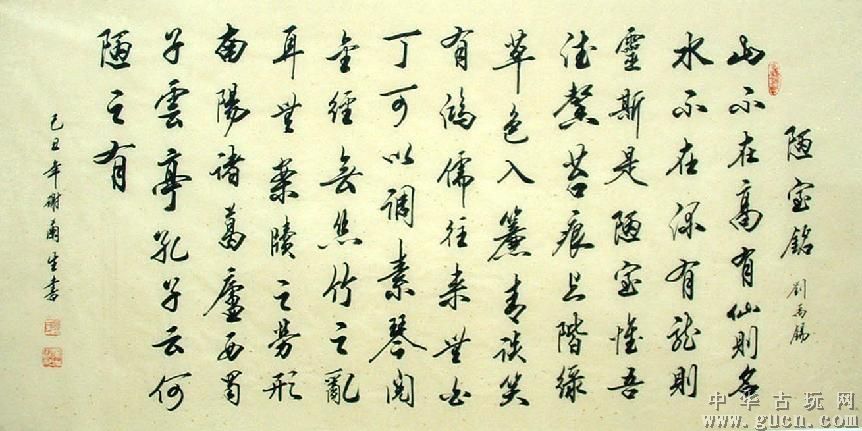 陋室銘 劉禹錫
山不在高有仙則名
水不在深有龍則
靈斯是陋室惟吾
德馨苔痕上階綠
草色入簾青談笑
有鴻儒往來無白
丁可以調素琴閱
金經無絲竹之亂
耳無案牘之勞形
南陽諸葛廬西蜀
子雲亭孔子云何
陋之有
己丑年謝生書
中华古玩网
www.gucn.com